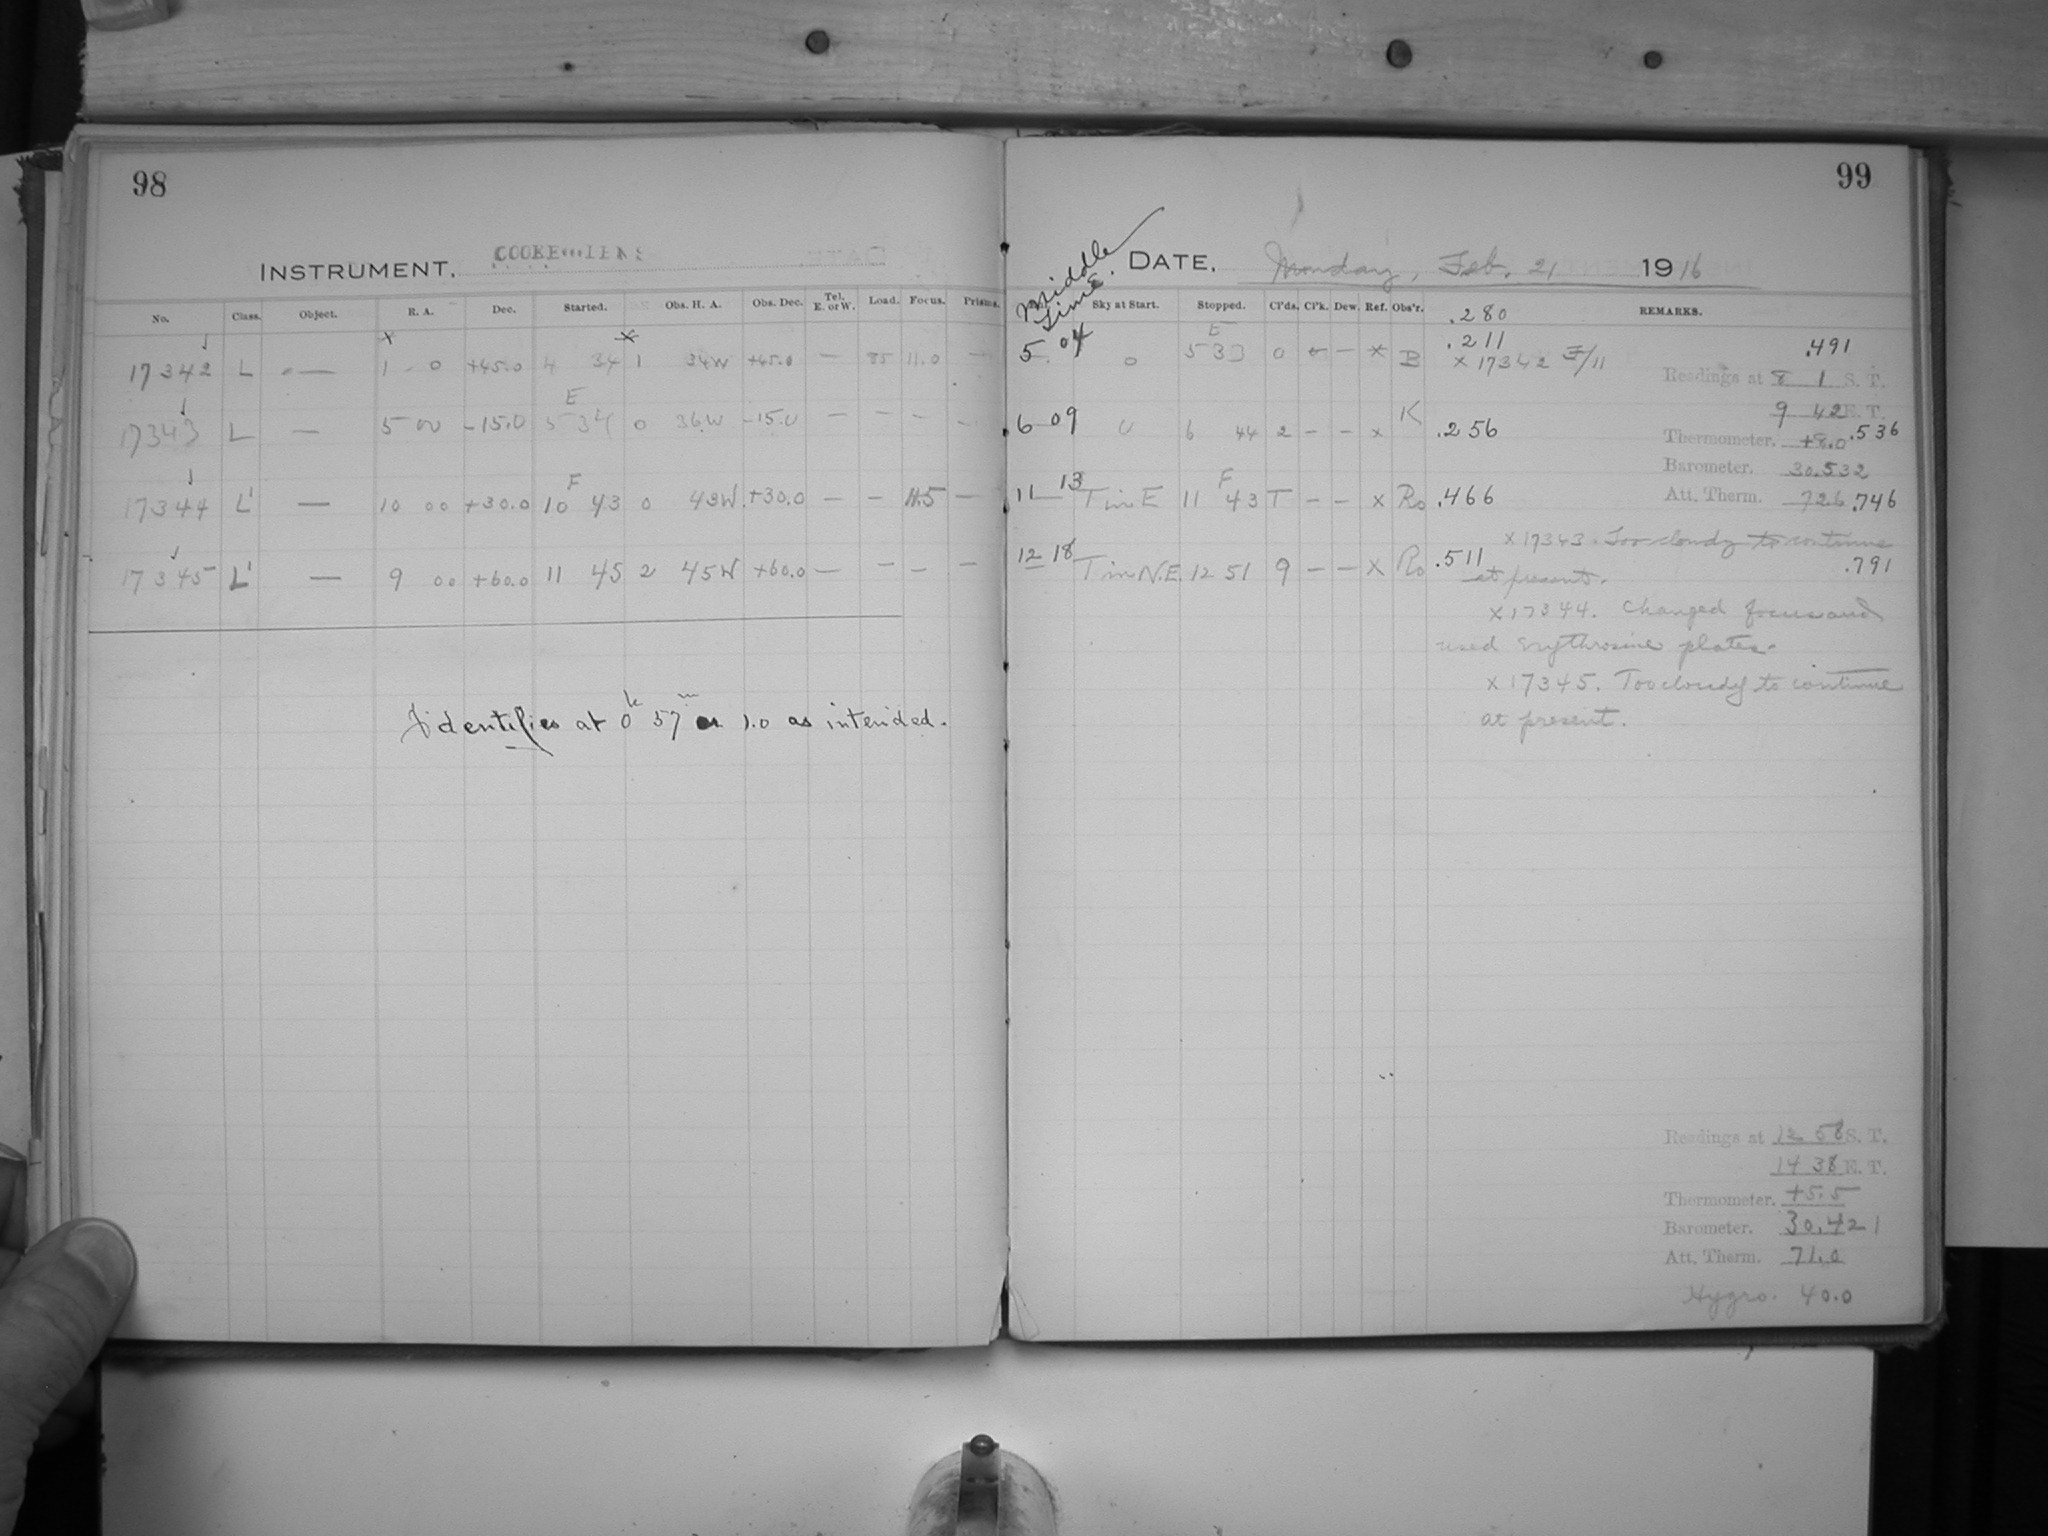 98
INSTRUMENT. COOKE LENS
No. Class. Object. R. A. Dec. Started. Obs. H. A. Obs. Dec. Tel. E. or W. Load. Focus. Prisms.
x x
17342 L — 1 0 +45.0 4 34 1 34W +45.0 — 85 11.0 —
E
17343 L — 5 00 -15.0 5 34 0 36W -15.0 — — — —
F
17344 L' — 10 00 +30.0 10 43 0 43W +30.0 — — 11.5 —
17345 L' — 9 00 +60.0 11 45 2 45W +60.0 — — — —
Identifies at 0h 57m or 1.0 as intended.
99
Middle Time. DATE, Monday, Feb. 21 1916
Sky at Start. Stopped. Cl'ds. Cl'k. Dew. Ref. Obs'r. REMARKS.
.280
E .211 .491
5.04 0 5 33 0 — x B x 17342 F/11
Readings at 8 1 S. T.
9 42 E. T.
6 09 0 6 44 2 — — x K .256
Thermometer. +8.0 .536
Barometer. 30.532
F
11 13 T in E 11 43 T — — x Ro .466
Att. Therm. 72.6 .746
x 17343. Too cloudy to continue
12 18 T in N.E. 12 51 9 — — x Ro .511 .791
at present.
x 17344. Changed focus and
used Erythrosine plates.
x 17345. Too cloudy to continue
at present.
Readings at 12 58 S. T.
14 38 E. T.
Thermometer. +5.5
Barometer. 30.421
Att. Therm. 71.0
Hygro. 40.0